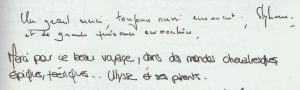 Un grand merci, toujours aussi émouvant,
et de grande puissance
Merci pour ce beau voyage, dans des mondes chevaleresques,
épiques, féériques... Ulysse et ses parents.